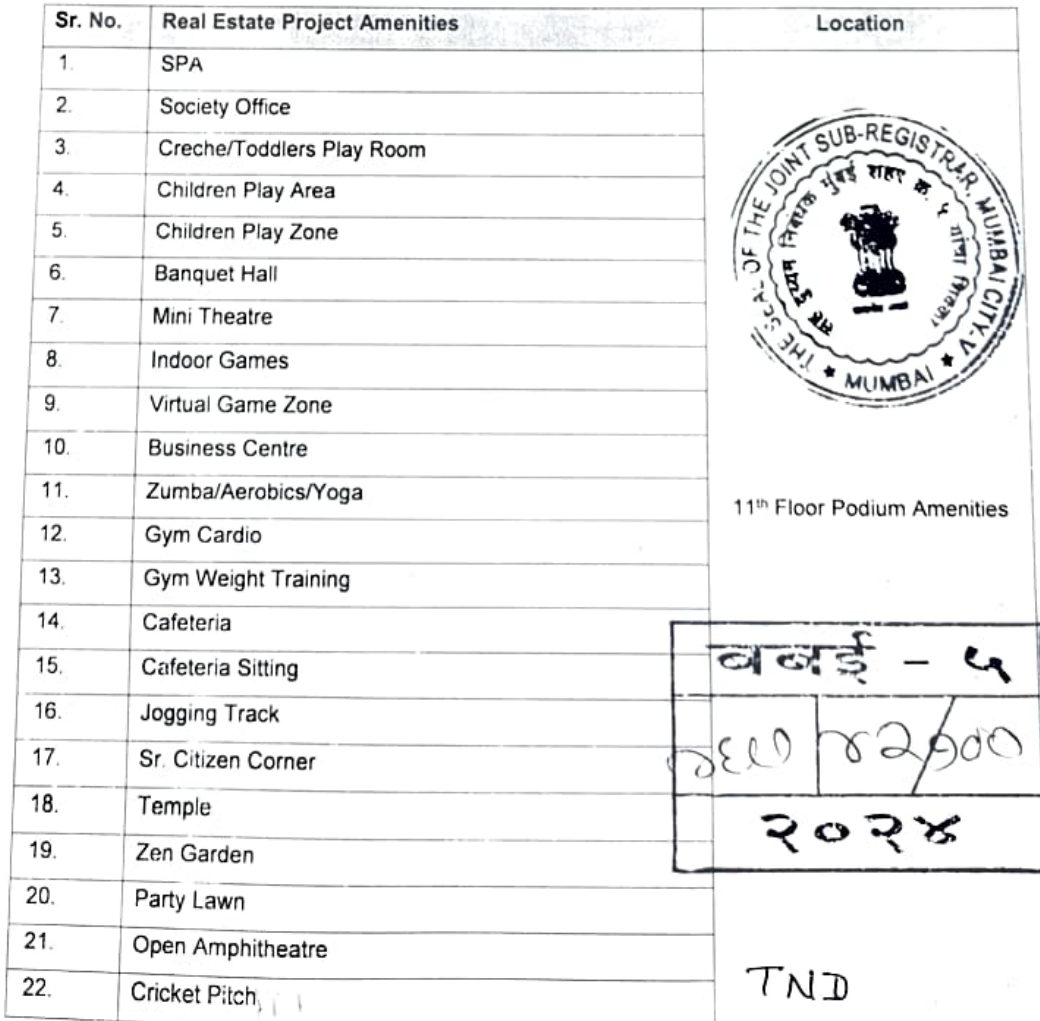 Sr. No. Real Estate Project Amenities Location
1. SPA
2. Society Office
3. Creche/Toddlers Play Room
4. Children Play Area
5. Children Play Zone
6. Banquet Hall
7. Mini Theatre
8. Indoor Games
9. Virtual Game Zone
10. Business Centre
11. Zumba/Aerobics/Yoga
12. Gym Cardio
13. Gym Weight Training
14. Cafeteria
15. Cafeteria Sitting
16. Jogging Track
17. Sr. Citizen Corner
18. Temple
19. Zen Garden
20. Party Lawn
21. Open Amphitheatre
22. Cricket Pitch
THE SEAL OF THE JOINT SUB-REGISTRAR, MUMBAI CITY-V
★ MUMBAI ★
सह दुय्यम निबंधक मुंबई शहर क्र. ५ यांचा शिक्का
11th Floor Podium Amenities
बबई - ५
२०२४
TND